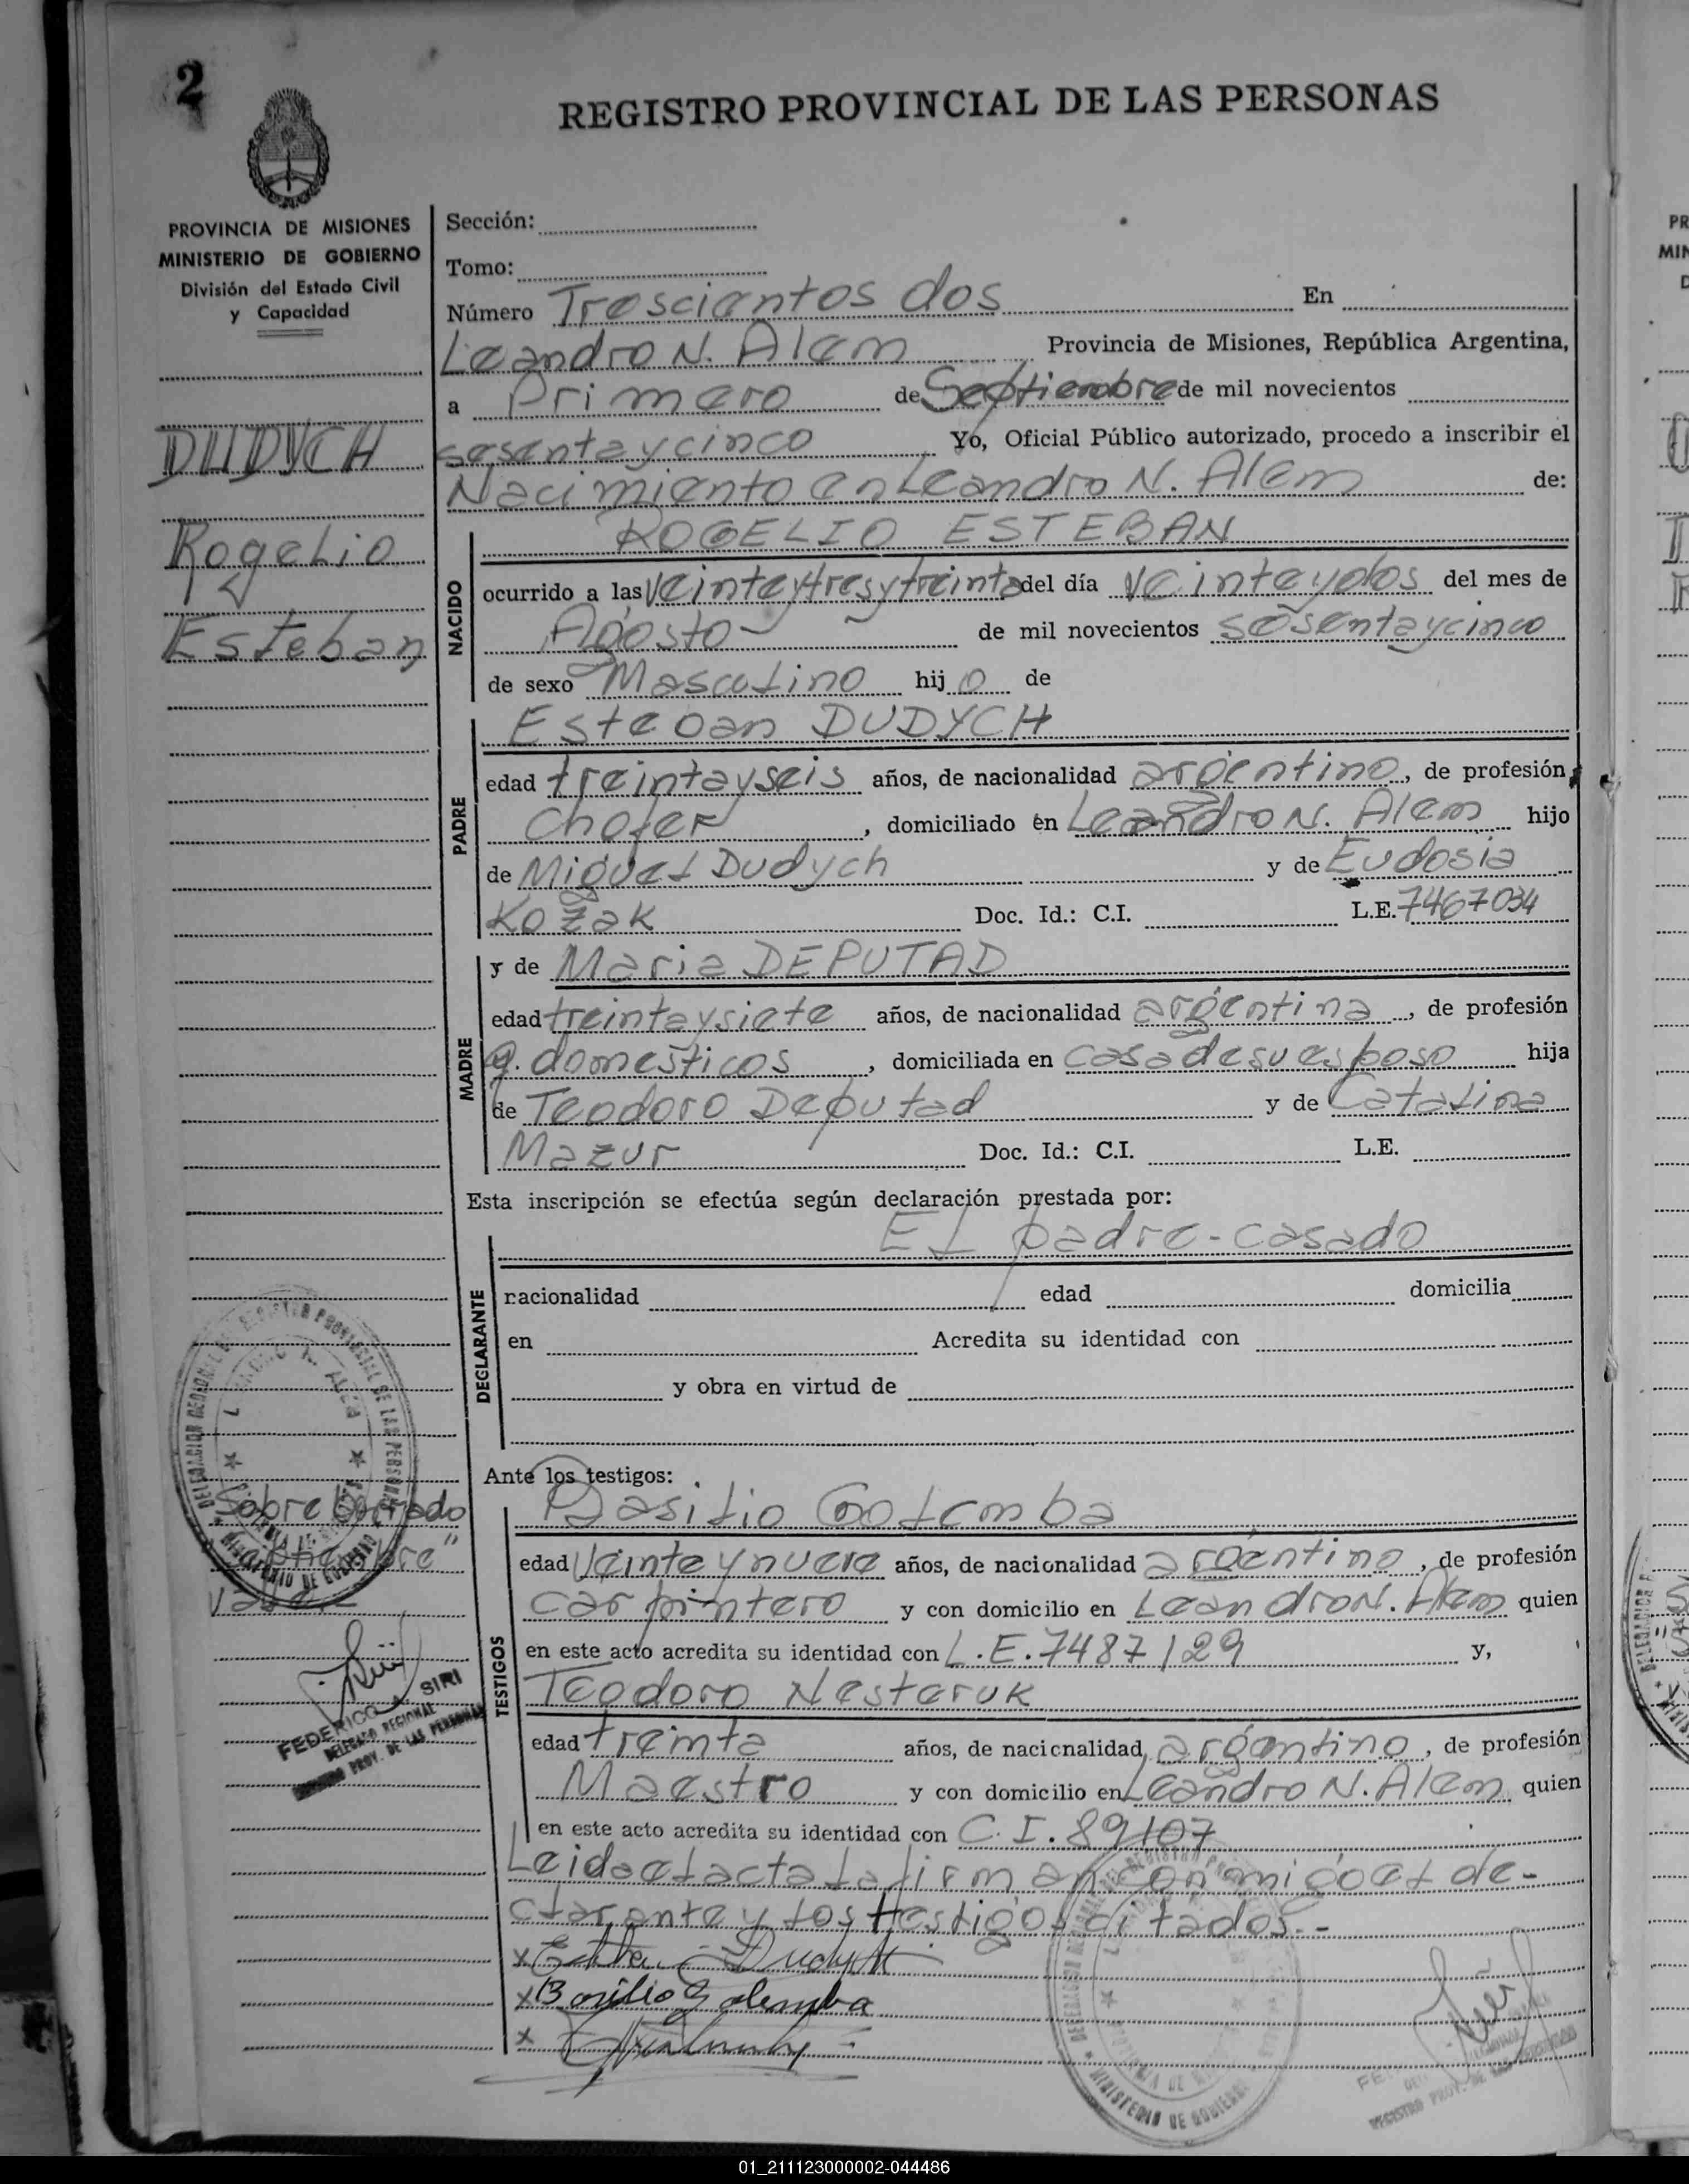 2
REGISTRO PROVINCIAL DE LAS PERSONAS
PROVINCIA DE MISIONES
MINISTERIO DE GOBIERNO
División del Estado Civil
y Capacidad
DUDYCH
Rogelio
Esteban
Sección:
Tomo:
Número Trescientos dos En
Leandro N. Alem Provincia de Misiones, República Argentina,
a Primero de Septiembre de mil novecientos
sesentaycinco Yo, Oficial Público autorizado, procedo a inscribir el
Nacimiento en Leandro N. Alem de:
ROGELIO ESTEBAN
NACIDO
ocurrido a las veinteytresytreinta del día veinteydos del mes de
Agosto de mil novecientos sesentaycinco
de sexo Masculino hijo de
Esteban DUDYCH
PADRE
edad treintayseis años, de nacionalidad argentino, de profesión
Chofer, domiciliado en Leandro N. Alem hijo
de Miguel Dudych y de Eudosia
Kozak Doc. Id.: C.I. L.E. 7467034
y de Maria DEPUTAD
MADRE
edad treintaysiete años, de nacionalidad argentina, de profesión
q. domésticos, domiciliada en casa de su esposo hija
de Teodoro Deputad y de Catalina
Mazur Doc. Id.: C.I. L.E.
Esta inscripción se efectúa según declaración prestada por:
El padre-casado
DECLARANTE
nacionalidad edad domicilia
en Acredita su identidad con
y obra en virtud de
Ante los testigos:
TESTIGOS
Basilio Golemba
edad veinteynueve años, de nacionalidad argentino, de profesión
carpintero y con domicilio en Leandro N. Alem quien
en este acto acredita su identidad con L.E. 7487129 y,
Teodoro Nesteruk
edad treinta años, de nacionalidad argentino, de profesión
Maestro y con domicilio en Leandro N. Alem quien
en este acto acredita su identidad con C.I. 89107
Leida el acta la firman conmigo el de-
clarante y los testigos citados.-
x Dudych
x Basilio Golemba
x
Sobre borrado
Vale
FEDERICO A. SIRI
DELEGADO REGIONAL
REGISTRO PROV. DE LAS PERSONAS
MINISTERIO DE GOBIERNO
01_211123000002-044486